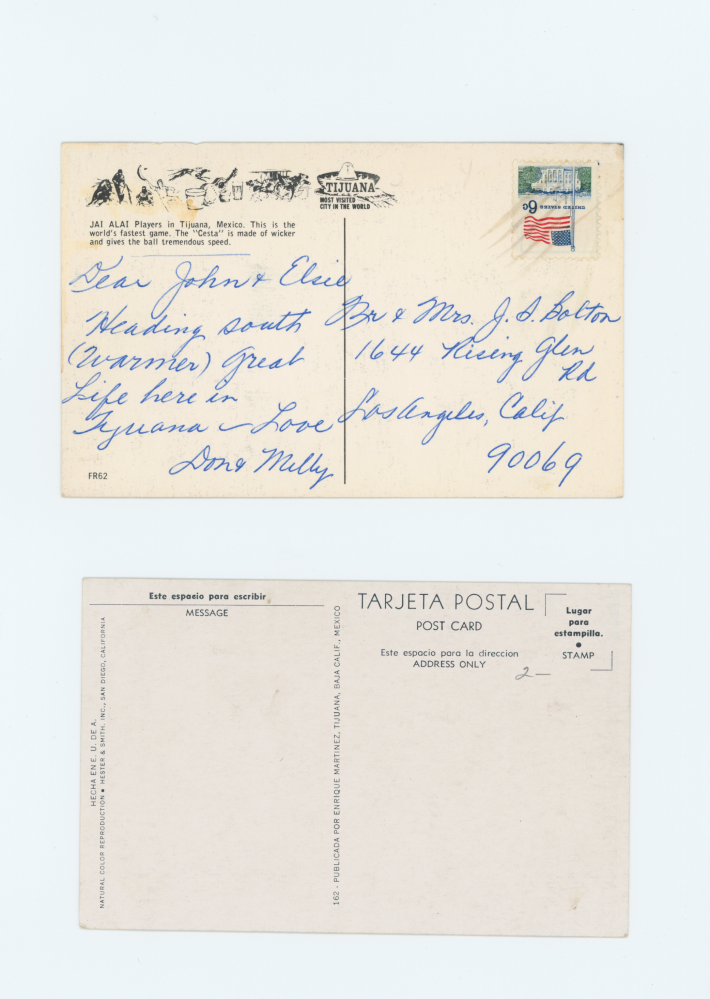 TIJUANA
MOST VISITED
CITY IN THE WORLD
UNITED STATES
6c
JAI ALAI Players in Tijuana, Mexico. This is the
world's fastest game. The "Cesta" is made of wicker
and gives the ball tremendous speed.
Dear John & Elsie
Heading south
(Warmer) Great
Life here in
Tijuana – Love
Don & Milly
Dr & Mrs. J. S. Bolton
1644 Rising Glen
Rd
Los Angeles, Calif
90069
FR62
Este espacio para escribir
MESSAGE
HECHA EN E. U. DE A.
NATURAL COLOR REPRODUCTION • HESTER & SMITH, INC., SAN DIEGO, CALIFORNIA
162 - PUBLICADA POR ENRIQUE MARTINEZ, TIJUANA, BAJA CALIF., MEXICO
TARJETA POSTAL
POST CARD
Este espacio para la direccion
ADDRESS ONLY
2 —
Lugar
para
estampilla.
•
STAMP